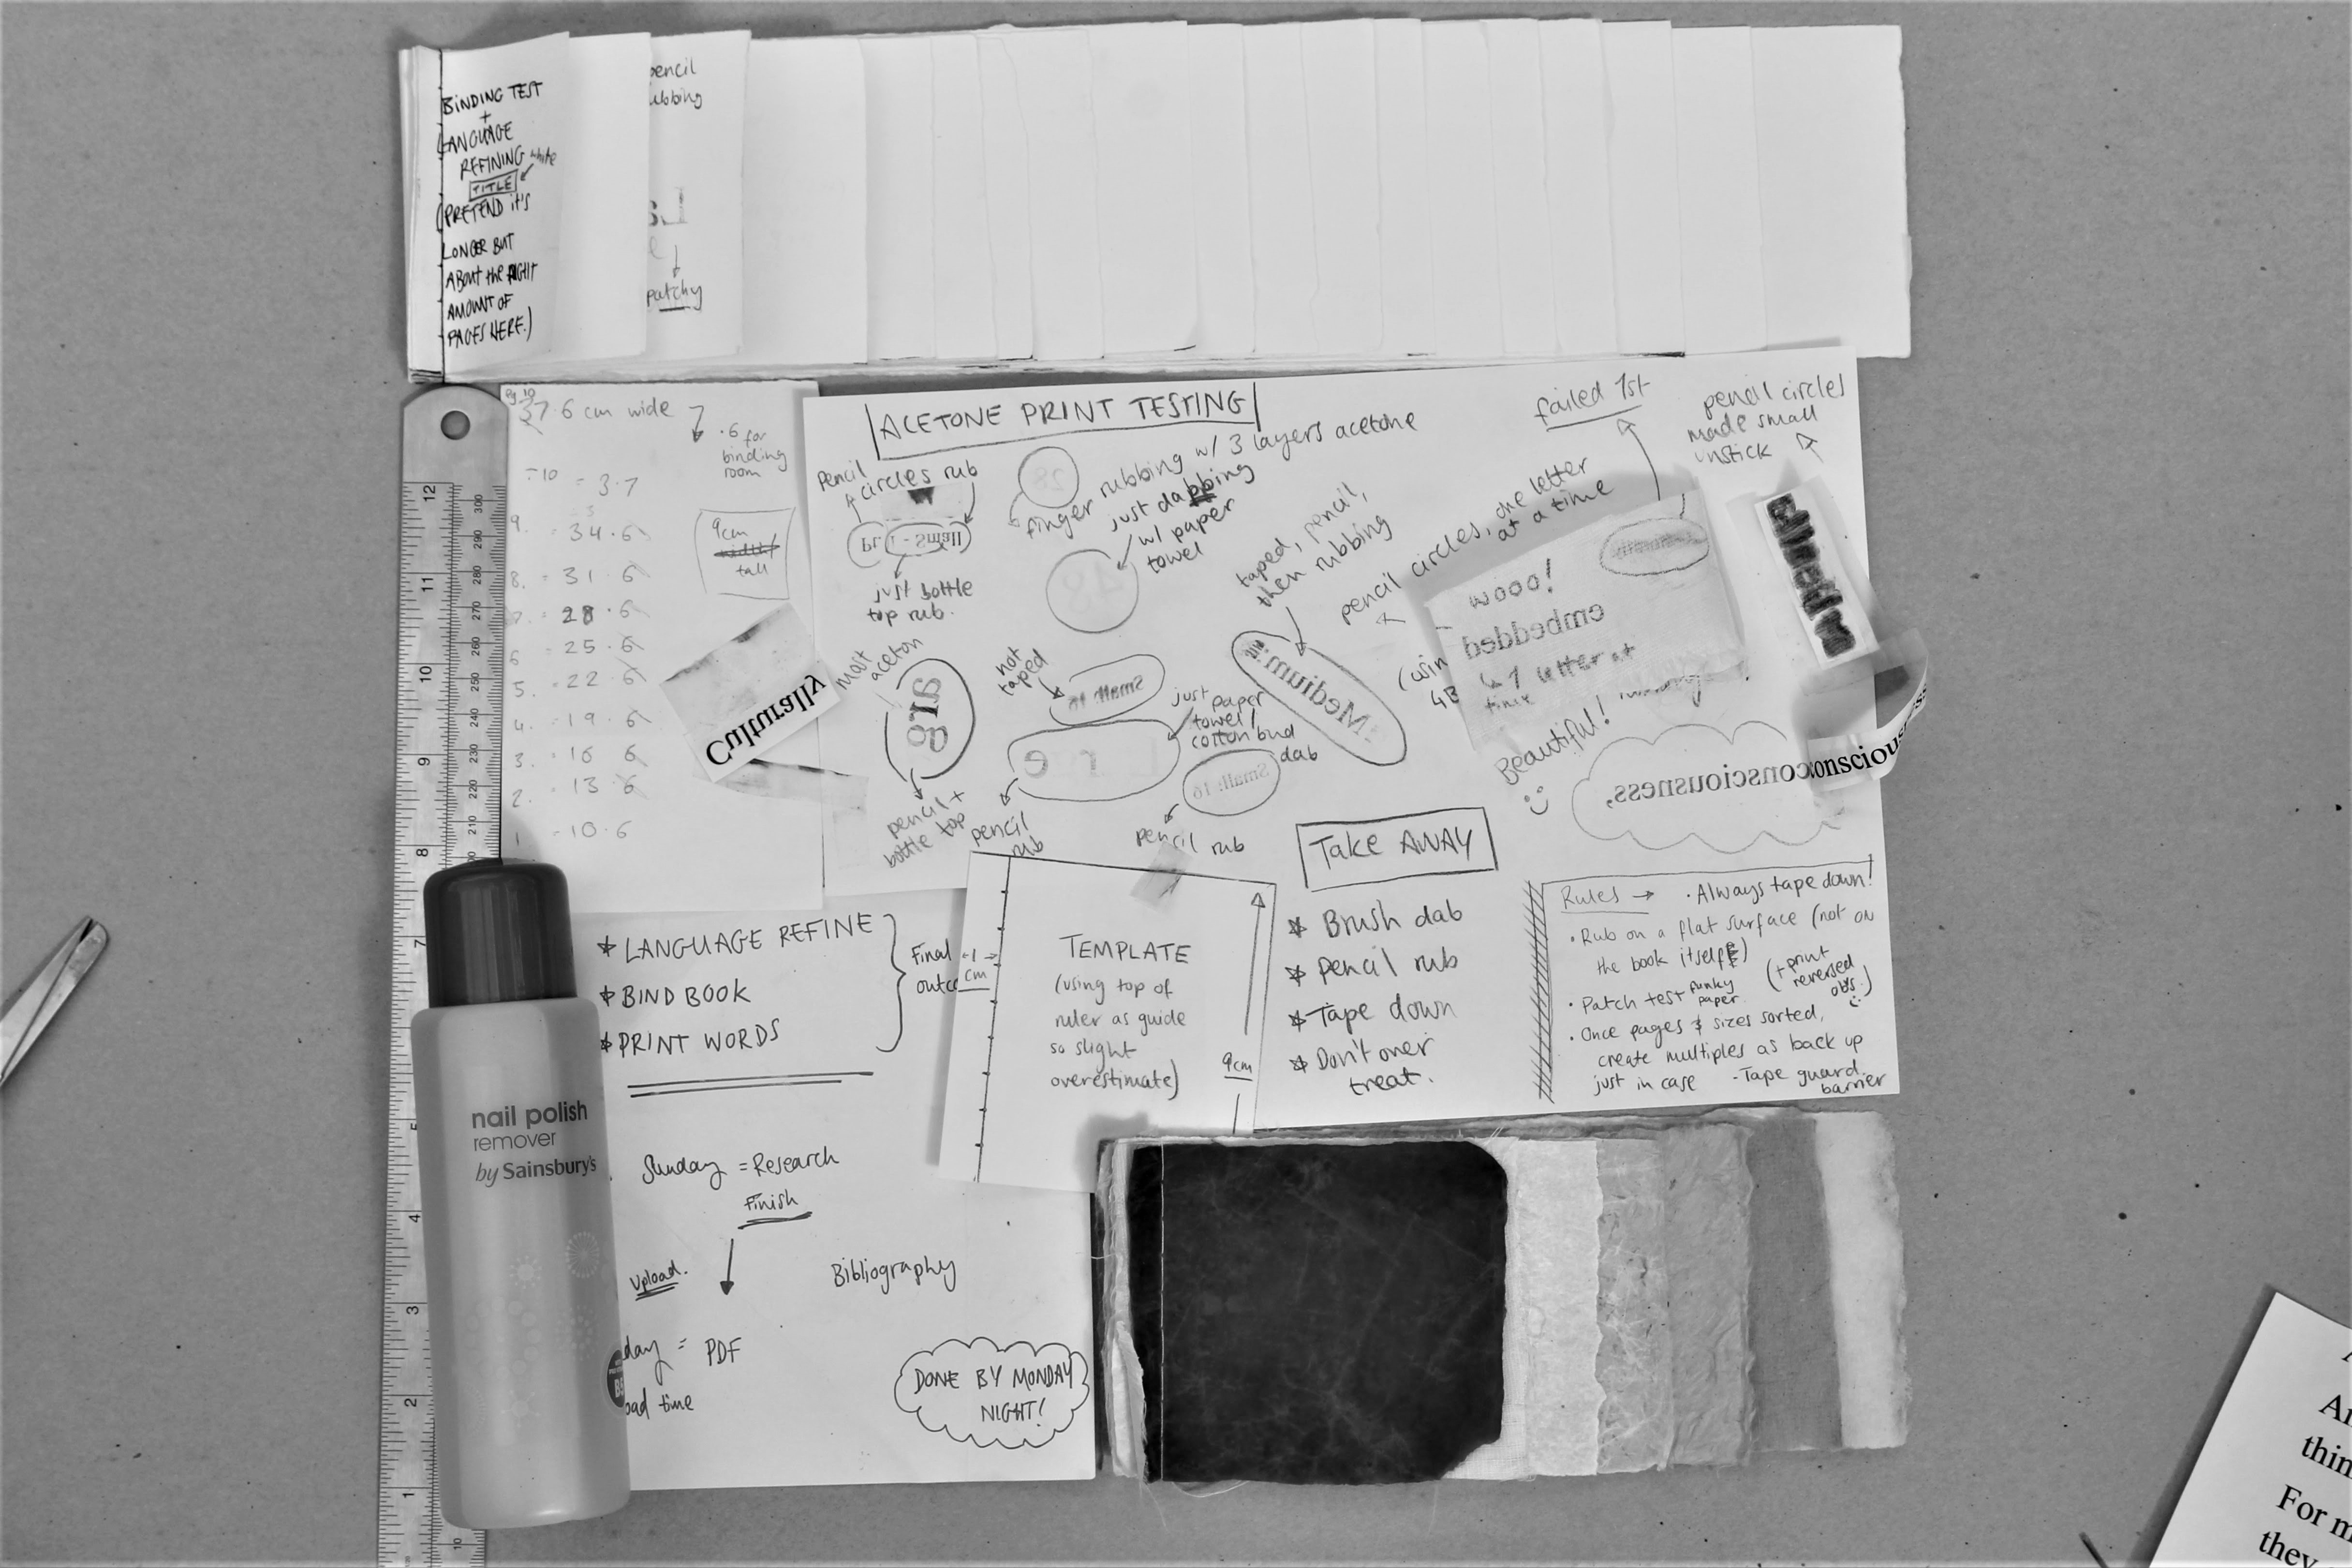 BINDING TEST
+
LANGUAGE
REFINING white
TITLE
(PRETEND it's
LONGER BUT
ABOUT the RIGHT
AMOUNT OF
PAGES HERE.)
pencil
ubbing
La
patchy
Pg 10
37.6 cm wide
.6 for
binding
room
÷10 = 3.7
9. = 34.6
8. = 31.6
7. = 28.6
6 = 25.6
5. = 22.6
4. = 19.6
3. = 16 6
2. = 13.6
1 = 10.6
9cm
width/
tall
ACETONE PRINT TESTING
pencil
circles rub
28
finger rubbing w/ 3 layers acetone
just dabbing
w/ paper
towel
48
Pt. 1 - Small
just bottle
top rub.
taped, pencil,
then rubbing
Medium:
pencil circles, one letter
at a time
failed 1st
pencil circles
made small
unstick
wooo!
embedded
↳ 1 letter at
time
Beautiful!
Culturally
most
aceton
arg
pencil +
bottle top
not
taped
Small: 16
just paper
towel/
cotton bud
dab
r e
pencil
rub
Small: 16
pencil rub
consciousness,
conscious
Take AWAY
* Brush dab
* Pencil rub
* Tape down
* Don't over
treat.
Rules → • Always tape down!
• Rub on a flat surface (not on
the book itself)
• Patch test funky
paper
(+ print
reversed
obvs.)
• Once pages & sizes sorted,
create multiples as back up
just in case
- Tape guard
barrier
* LANGUAGE REFINE
* BIND BOOK
* PRINT WORDS
Final
outco
1
cm
TEMPLATE
(using top of
ruler as guide
so slight
overestimate)
9cm
nail polish
remover
by Sainsbury's
Sunday = Research
Finish
Upload.
Bibliography
day = PDF
oad time
DONE BY MONDAY
NIGHT!
12
11
10
9
8
7
5
4
3
2
1
300
290
280
270
260
250
240
230
220
210
10
thin
For m
they